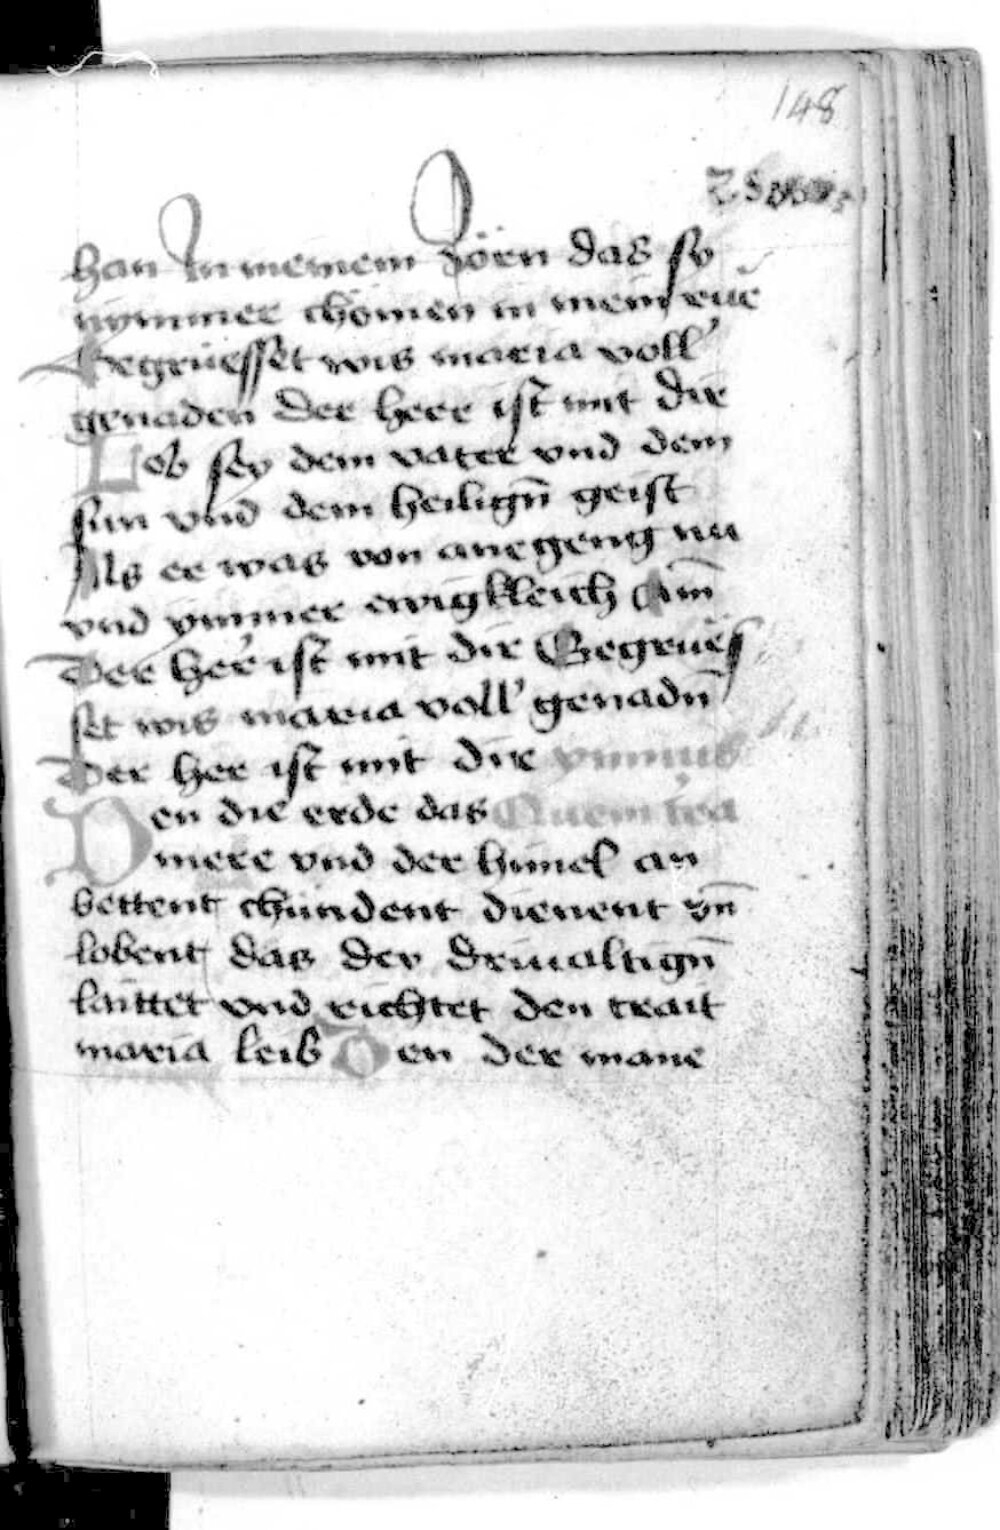 148
han In meinem zorn das sy
nymmer chömen in mein rue
Gegruesset wis maria voll
genaden Der herr ist mit dir
Lob sey dem vater vnd dem
sun vnd dem heilign̄ geist
Als er was von anegeng nu
vnd ymmer ewigkleich Am̄
Der her ist mit dir Gegrues
set wis maria voll genadn̄
Der her ist mit dir ymnus
Den die erde das Quem tra
mere vnd der himel an
bettent chündent dienent vn̄
lobent das der driualtign̄
laittet vnd richtet den trait
maria leib Den der mane